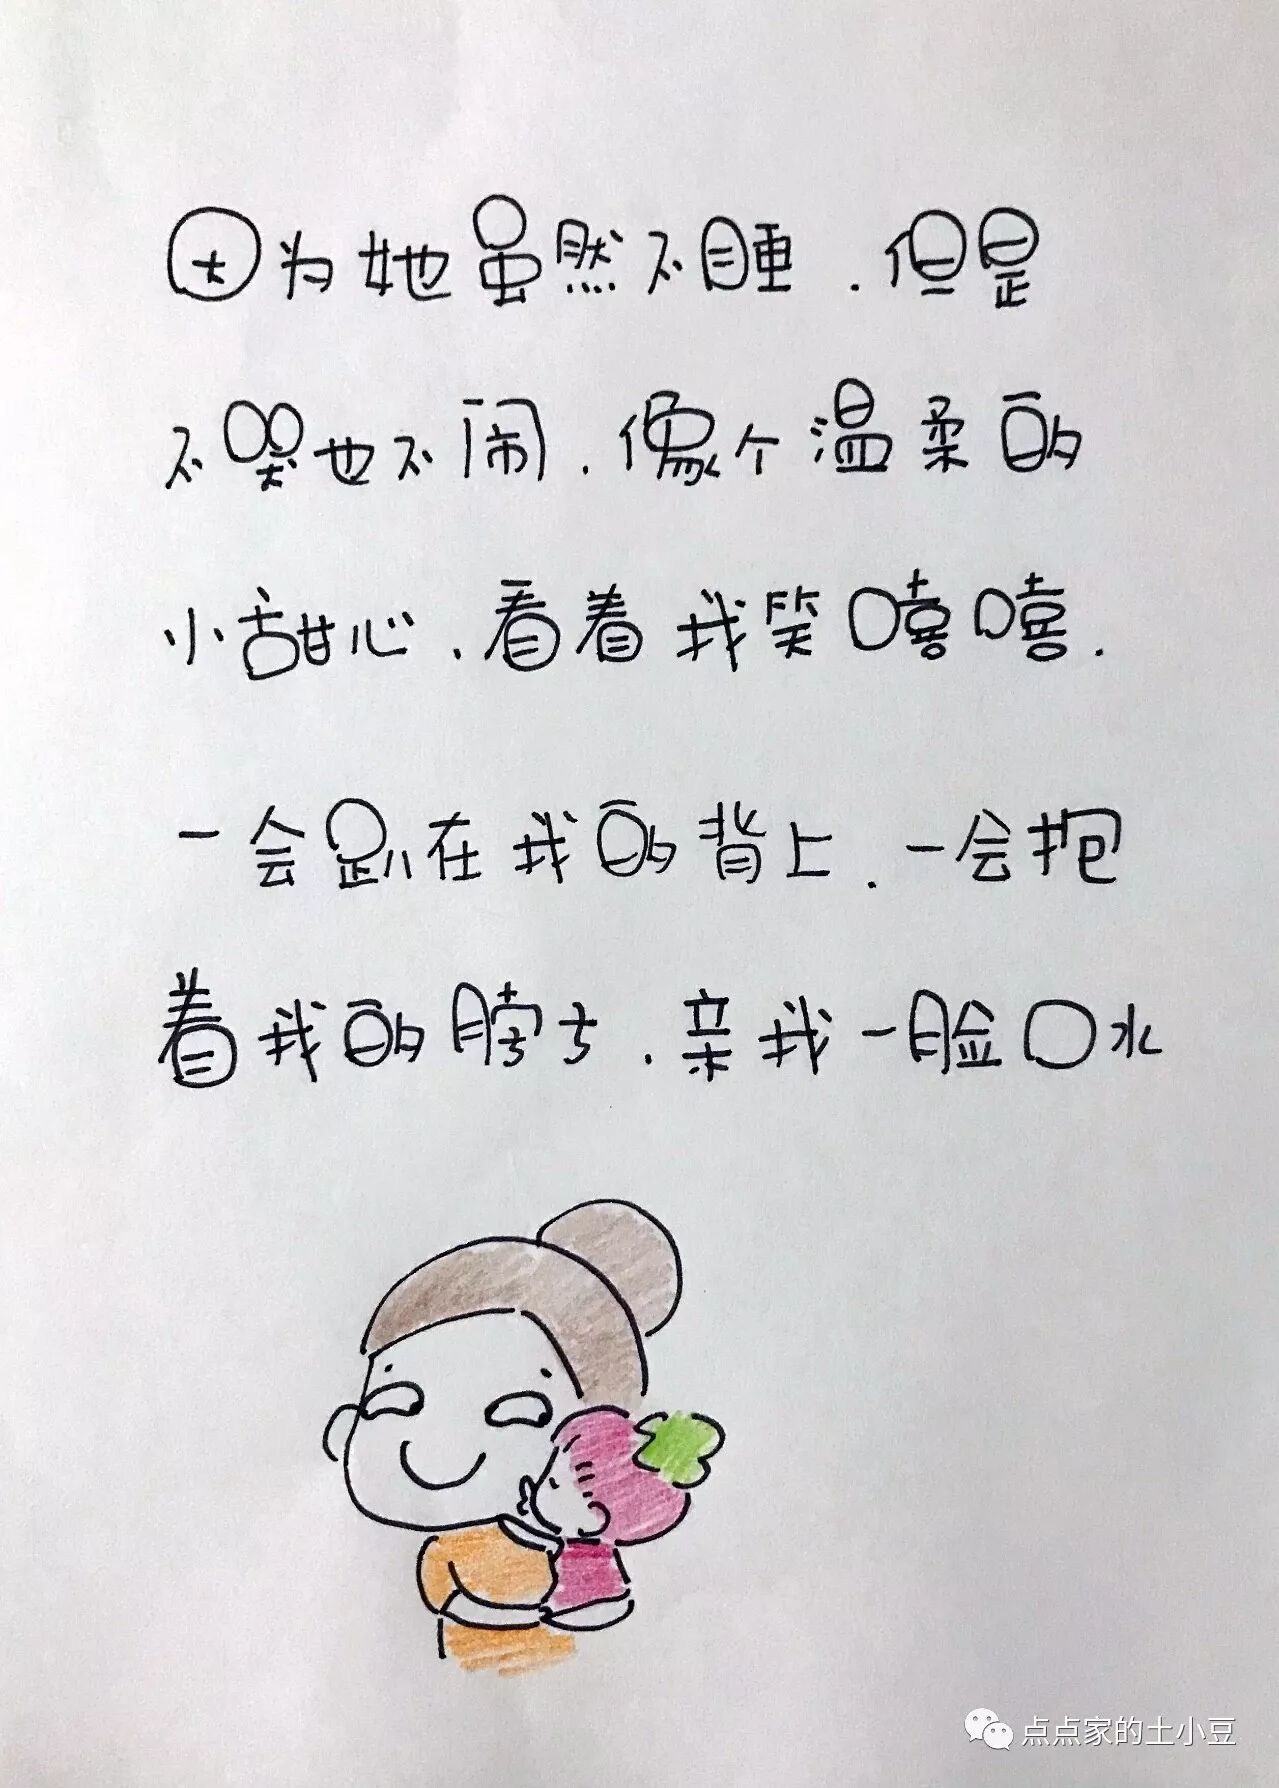 因为她虽然不睡.但是
不哭也不闹.像个温柔的
小甜心.看着我笑嘻嘻.
一会趴在我的背上.一会抱
着我的脖子.亲我一脸口水
点点家的土小豆